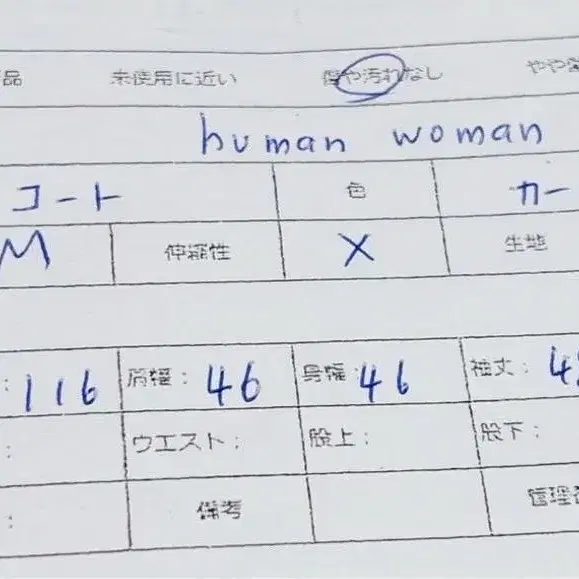 品 未使用に近い 傷や汚れなし やや傷
human woman
コート 色 カー
M 伸縮性 X 生地
: 116 肩幅: 46 身幅: 46 袖丈: 4
: ウエスト: 股上: 股下:
: 備考 管理